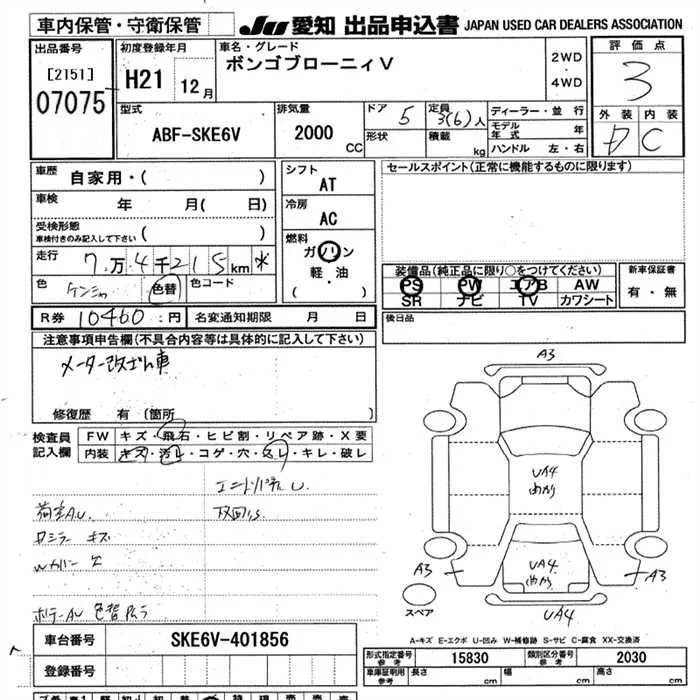 車内保管・守衛保管
JU 愛知 出品申込書 JAPAN USED CAR DEALERS ASSOCIATION
出品番号
[2151]
07075
初度登録年月
H21 12月
車名・グレード
ボンゴブローニィV
2WD
・
4WD
評価点
3
外装 内装
D C
型式
ABF-SKE6V
排気量
2000 CC
ドア 5
形状
定員 3(6)人
積載 kg
ディーラー・並行
モデル年式 年
ハンドル 左・右
車歴 自家用・( )
車検 年 月( 日)
受検形態
車検付きのみ記入して下さい ( )
走行 7万4千215km *
色 色替 色コード
シフト AT
冷房 AC
燃料
ガソリン
・
軽・油
( )
セールスポイント(正常に機能するものに限ります)
装備品(純正品に限り○をつけてください)
PS PW エアB AW
SR ナビ TV カワシート
新車保証書
有・無
R券 10460 円 名変通知期限 月 日
後日品
注意事項申告欄(不具合内容等は具体的に記入して下さい)
メーター改ざん車
修復歴 有 [箇所
検査員記入欄
FW キズ・飛石・ヒビ割・リペア跡・X要
内装 キズ・汚レ・コゲ・穴・スレ・キレ・破レ
エンドパネルU
荷室AU
Rミラーキズ
Wカバー欠
A3
UA4
UA4
A3
A3
UA4
スペア
A-キズ E-エクボ U-凹み W-補修跡 S-サビ C-腐食 XX-交換済
車台番号 SKE6V-401856
登録番号
形式指定番号 参考 15830 類別区分番号 参考 2030
車庫証明用 参考 長さ cm 幅 cm 高さ cm